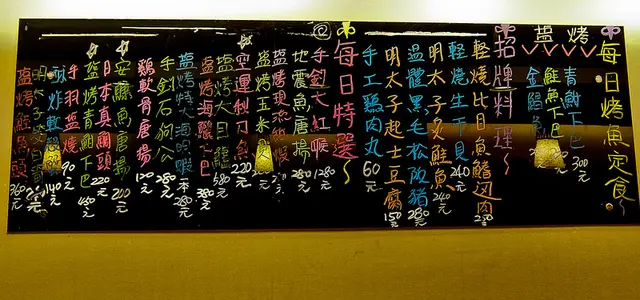 每日烤魚定食~
鹽烤
青魽下巴 300元
鮭魚下巴
招牌料理~
輕燒比目魚鰭邊肉 250元
輕燒生干貝 240元
明太子炙鮭魚 240元
溫體黑毛松阪豬 280元
明太子起士豆腐 150元
手工雞肉丸 60元
每日特選~
手釣大紅喉 1280元
地震魚唐揚 280元
鹽烤玉米
空運剝刀魚 220元
鹽烤大目鰱 580元
鹽烤海鱺下巴 380元
手釣石鉤公 280元
雞軟骨唐揚 120元
安康魚唐揚 200元
日本真鯛頭 220元
鹽烤青魽下巴 450元
手羽塩燒 90元
酥炸軟 140元
鹽烤鮭魚頭 260元